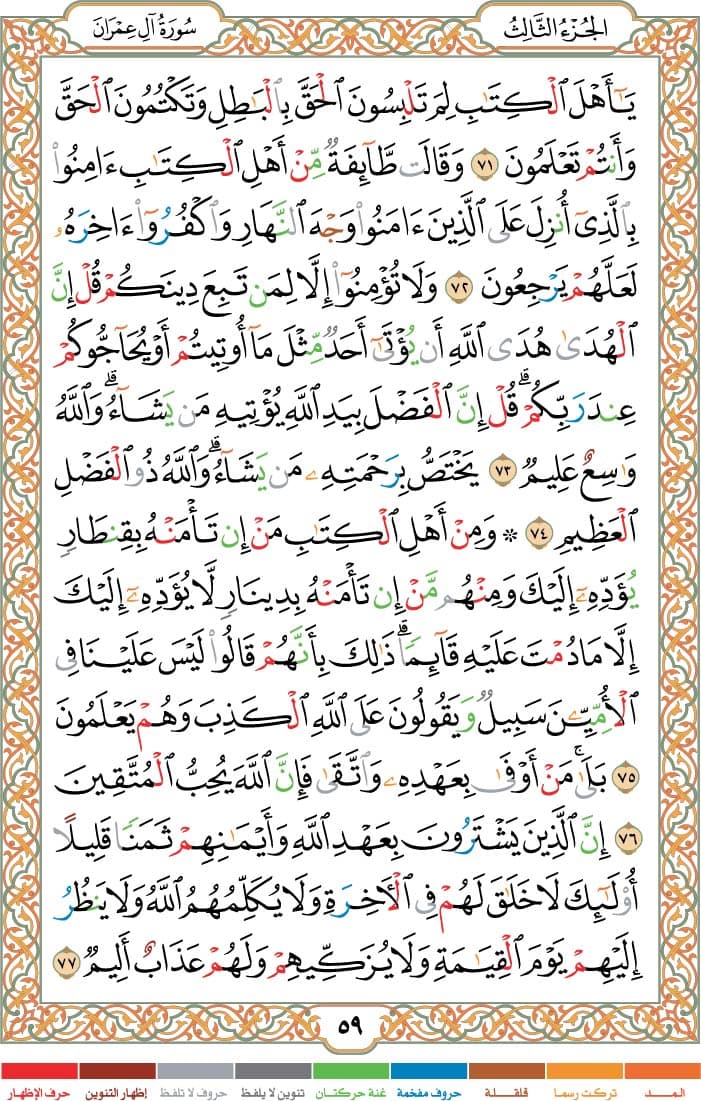 سُورَةُ آلِ عِمْرَانَ
الجُزْءُ الثَّالِثُ
يَٰٓأَهْلَ ٱلْكِتَٰبِ لِمَ تَلْبِسُونَ ٱلْحَقَّ بِٱلْبَٰطِلِ وَتَكْتُمُونَ ٱلْحَقَّ
وَأَنتُمْ تَعْلَمُونَ ٧١ وَقَالَت طَّآئِفَةٌ مِّنْ أَهْلِ ٱلْكِتَٰبِ ءَامِنُوا۟
بِٱلَّذِىٓ أُنزِلَ عَلَى ٱلَّذِينَ ءَامَنُوا۟ وَجْهَ ٱلنَّهَارِ وَٱكْفُرُوٓا۟ ءَاخِرَهُۥ
لَعَلَّهُمْ يَرْجِعُونَ ٧٢ وَلَا تُؤْمِنُوٓا۟ إِلَّا لِمَن تَبِعَ دِينَكُمْ قُلْ إِنَّ
ٱلْهُدَىٰ هُدَى ٱللَّهِ أَن يُؤْتَىٰٓ أَحَدٌ مِّثْلَ مَآ أُوتِيتُمْ أَوْ يُحَآجُّوكُمْ
عِندَ رَبِّكُمْ ۗ قُلْ إِنَّ ٱلْفَضْلَ بِيَدِ ٱللَّهِ يُؤْتِيهِ مَن يَشَآءُ ۗ وَٱللَّهُ
وَٰسِعٌ عَلِيمٌ ٧٣ يَخْتَصُّ بِرَحْمَتِهِۦ مَن يَشَآءُ ۗ وَٱللَّهُ ذُو ٱلْفَضْلِ
ٱلْعَظِيمِ ٧٤ ۞ وَمِنْ أَهْلِ ٱلْكِتَٰبِ مَنْ إِن تَأْمَنْهُ بِقِنطَارٍ
يُؤَدِّهِۦٓ إِلَيْكَ وَمِنْهُم مَّنْ إِن تَأْمَنْهُ بِدِينَارٍ لَّا يُؤَدِّهِۦٓ إِلَيْكَ
إِلَّا مَا دُمْتَ عَلَيْهِ قَآئِمًا ۗ ذَٰلِكَ بِأَنَّهُمْ قَالُوا۟ لَيْسَ عَلَيْنَا فِى
ٱلْأُمِّيِّۦنَ سَبِيلٌ وَيَقُولُونَ عَلَى ٱللَّهِ ٱلْكَذِبَ وَهُمْ يَعْلَمُونَ
٧٥ بَلَىٰ ۚ مَنْ أَوْفَىٰ بِعَهْدِهِۦ وَٱتَّقَىٰ فَإِنَّ ٱللَّهَ يُحِبُّ ٱلْمُتَّقِينَ
٧٦ إِنَّ ٱلَّذِينَ يَشْتَرُونَ بِعَهْدِ ٱللَّهِ وَأَيْمَٰنِهِمْ ثَمَنًا قَلِيلًا
أُو۟لَٰٓئِكَ لَا خَلَٰقَ لَهُمْ فِى ٱلْأَخِرَةِ وَلَا يُكَلِّمُهُمُ ٱللَّهُ وَلَا يَنظُرُ
إِلَيْهِمْ يَوْمَ ٱلْقِيَٰمَةِ وَلَا يُزَكِّيهِمْ وَلَهُمْ عَذَابٌ أَلِيمٌ ٧٧
٥٩
المـــد تركت رسما قلقـــلة حروف مفخمة غنة حركتـان تنوين لا يلفظ حروف لا تلفظ إظهار التنوين حرف الإظهار